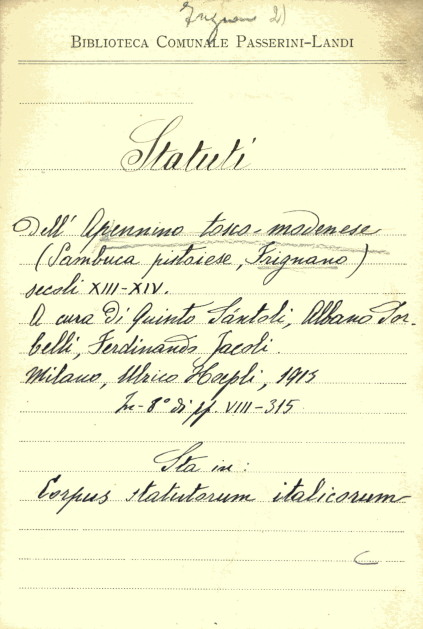 Frignano 2)
BIBLIOTECA COMUNALE PASSERINI-LANDI
Statuti
Dell' Apennino tosco-modenese
(Sambuca pistoiese, Frignano)
secoli XIII-XIV.
A cura di Quinto Santoli, Albano Sor-
belli, Ferdinando Jacoli.
Milano, Ulrico Hoepli, 1913
In-8° di pp. VIII-315
Sta in:
Corpus statutorum italicorum